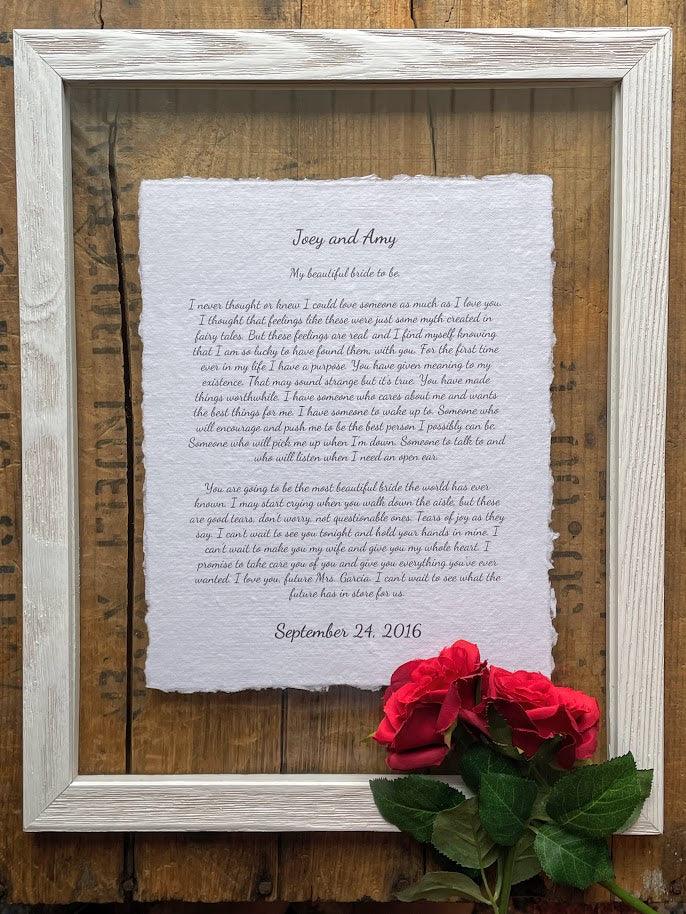 Joey and Amy
My beautiful bride to be,
I never thought or knew I could love someone as much as I love you.
I thought that feelings like these were just some myth created in
fairy tales. But these feelings are real, and I find myself knowing
that I am so lucky to have found them, with you. For the first time
ever in my life I have a purpose. You have given meaning to my
existence. That may sound strange but it's true. You have made
things worthwhile. I have someone who cares about me and wants
the best things for me. I have someone to wake up to. Someone who
will encourage and push me to be the best person I possibly can be.
Someone who will pick me up when I'm down. Someone to talk to and
who will listen when I need an open ear.
You are going to be the most beautiful bride the world has ever
known. I may start crying when you walk down the aisle, but these
are good tears, don't worry, not questionable ones. Tears of joy as they
say. I can't wait to see you tonight and hold your hands in mine. I
can't wait to make you my wife and give you my whole heart. I
promise to take care you of you and give you everything you've ever
wanted. I love you, future Mrs. Garcia. I can't wait to see what the
future has in store for us.
September 24, 2016